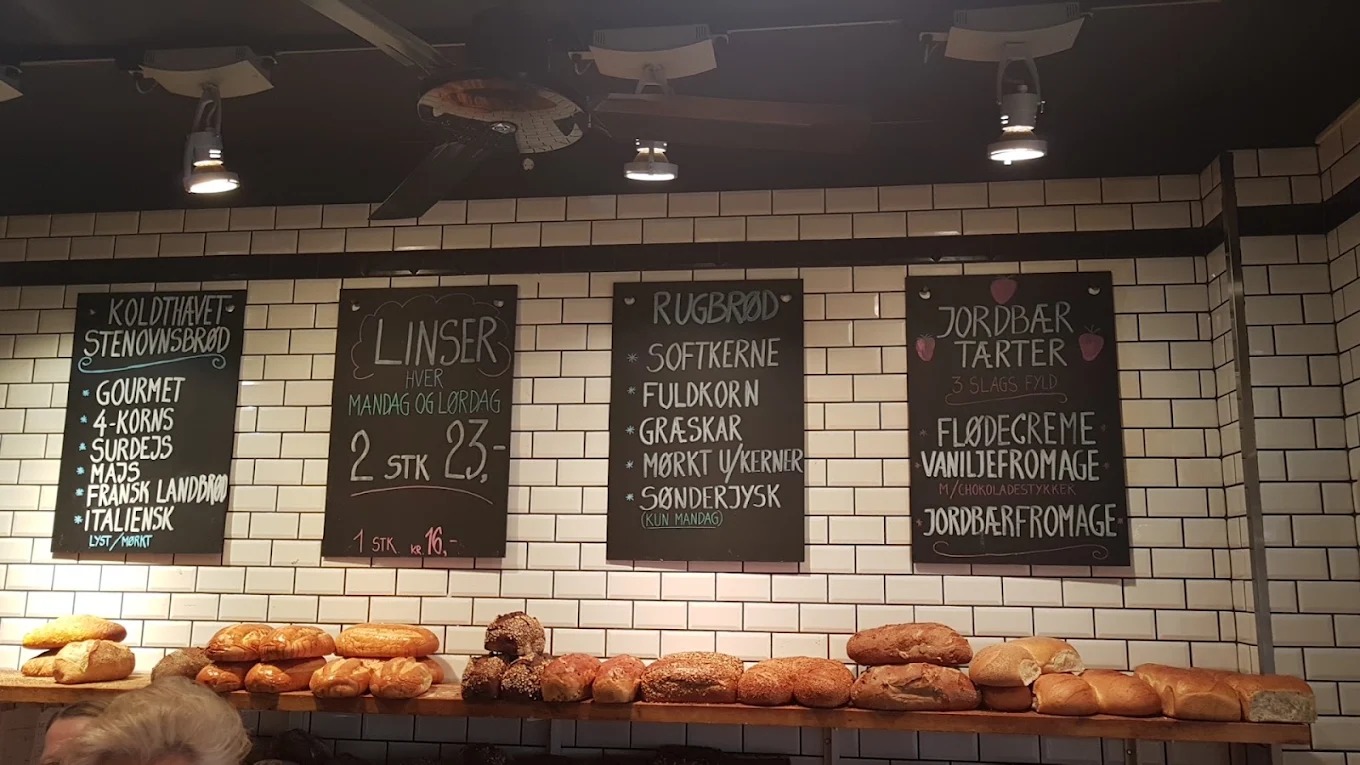 KOLDTHAVET
STENOVNSBRØD
* GOURMET
* 4-KORNS
* SURDEJS
* MAJS
* FRANSK LANDBRØD
* ITALIENSK
LYST/MØRKT
LINSER
HVER
MANDAG OG LØRDAG
2 STK 23,-
1 STK KR. 16,-
RUGBRØD
* SOFTKERNE
* FULDKORN
* GRÆSKAR
* MØRKT U/KERNER
* SØNDERJYSK
(KUN MANDAG)
JORDBÆR
TÆRTER
3 SLAGS FYLD
FLØDECREME
VANILJEFROMAGE
M/CHOKOLADESTYKKER
JORDBÆRFROMAGE